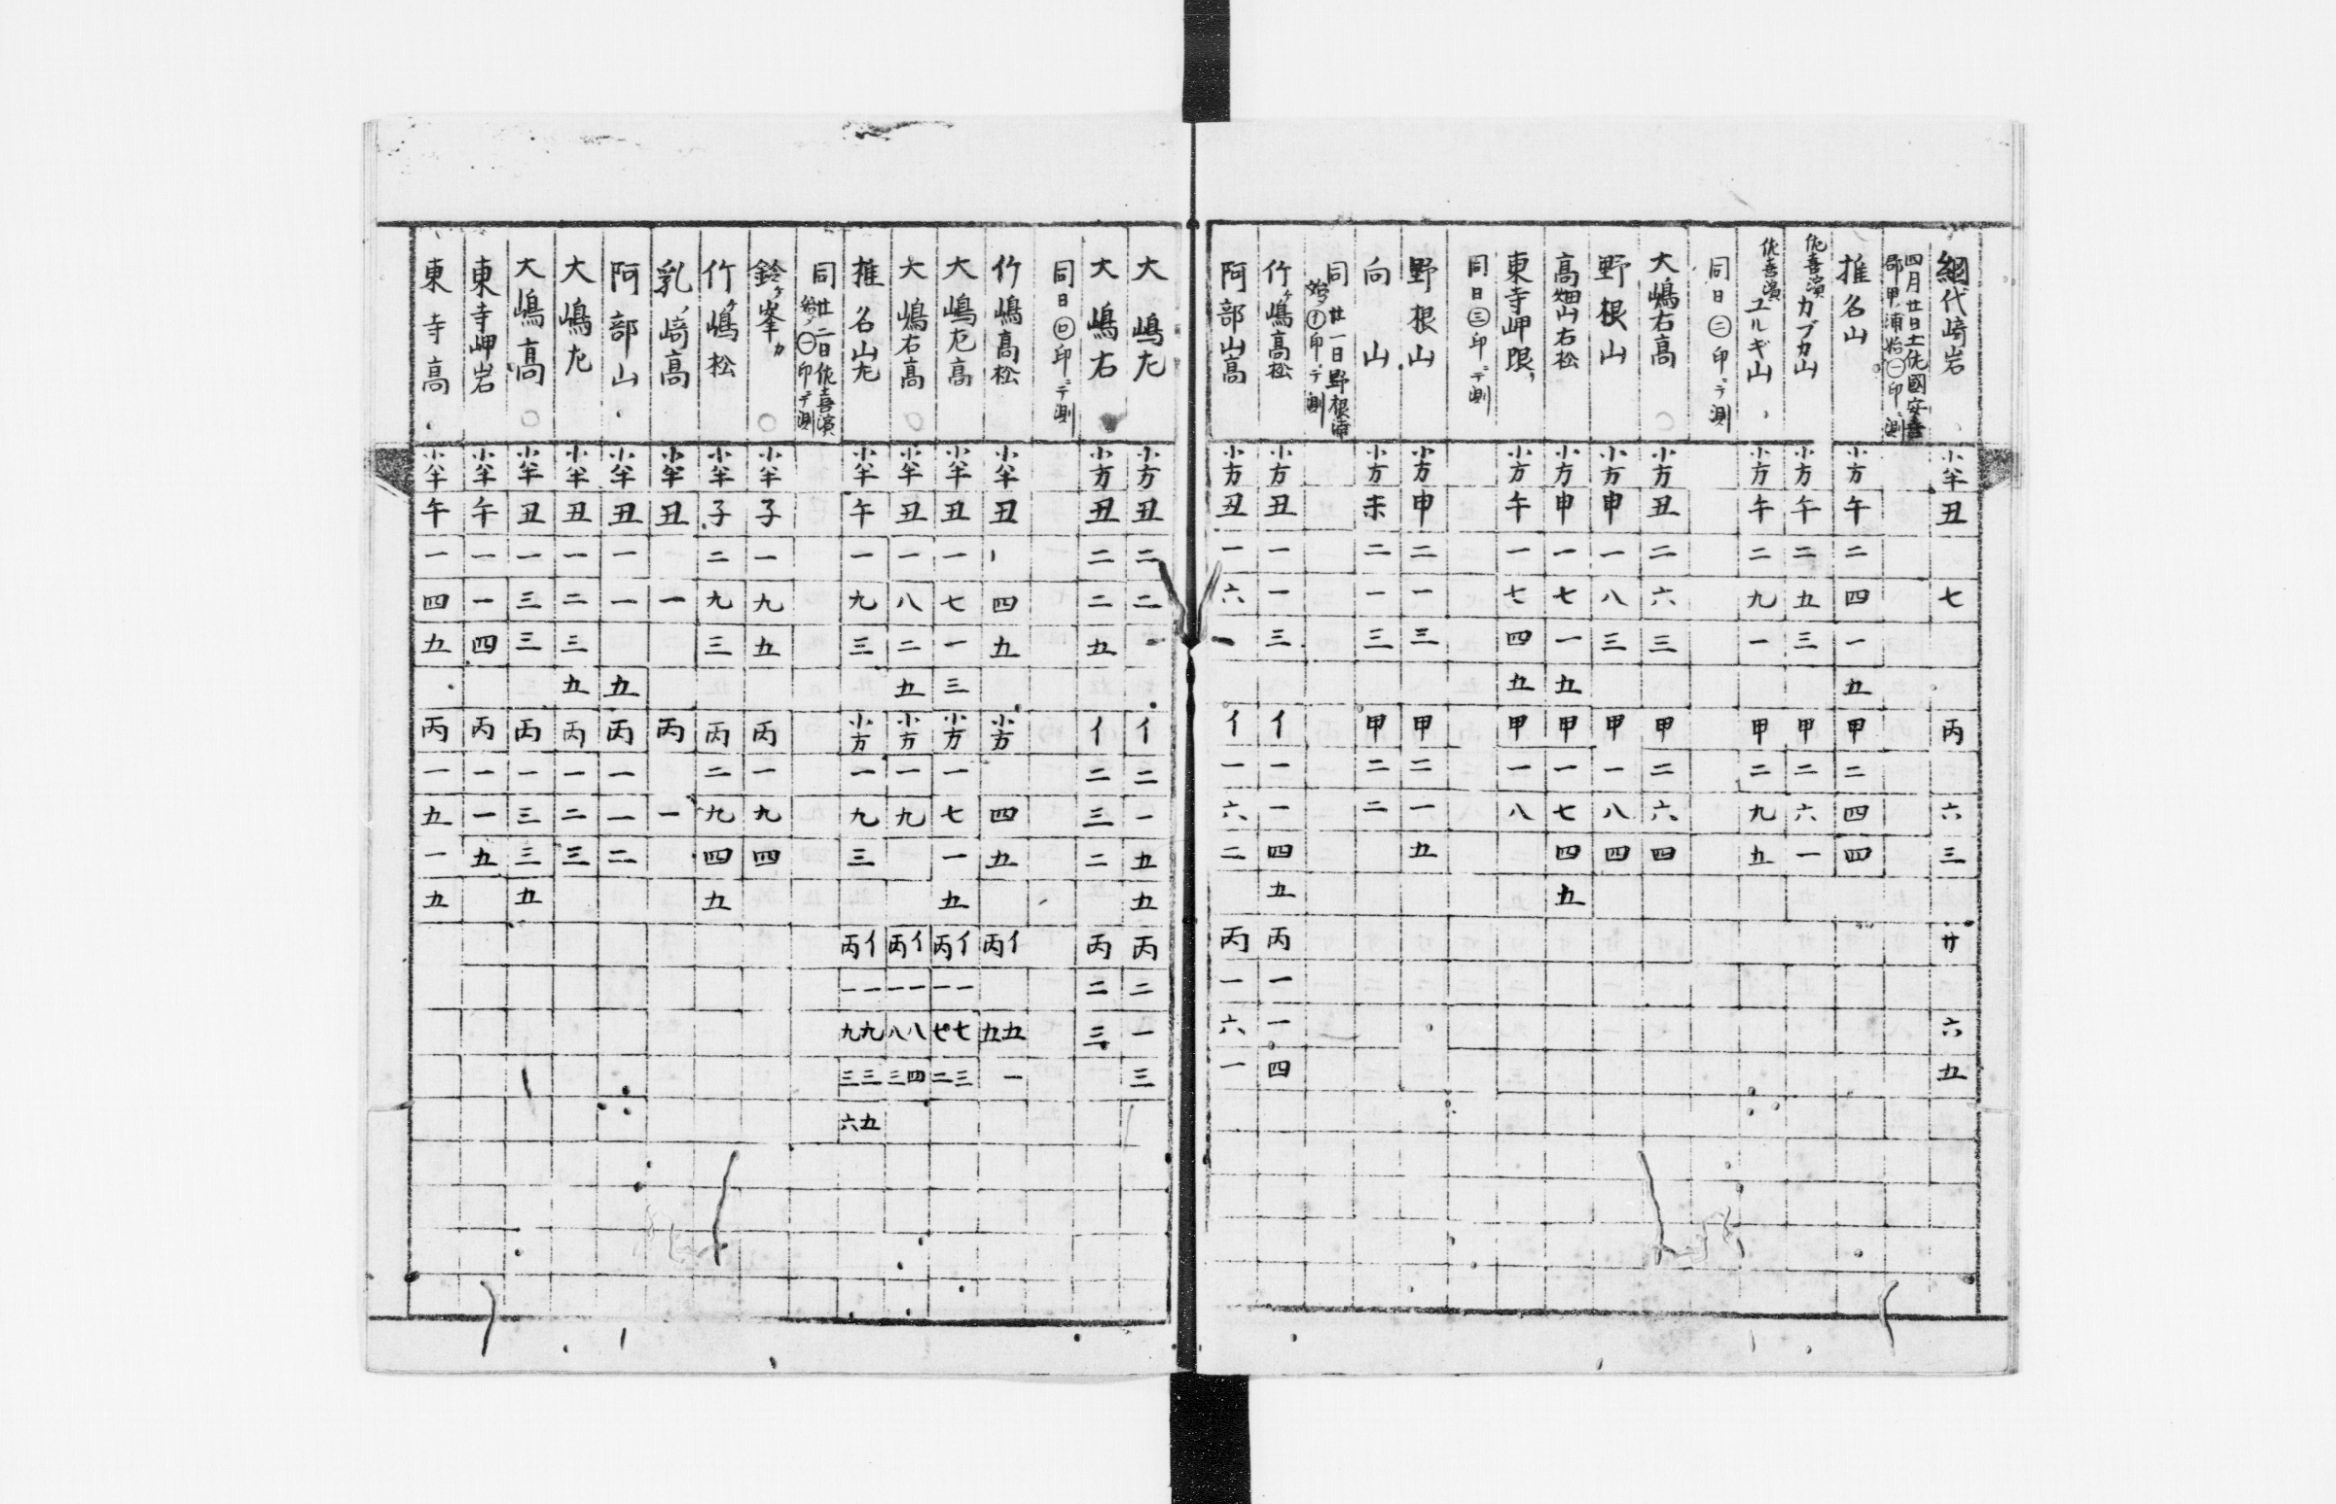 網代﨑岩 小半 丑 七 丙 六 三 廾 六 五
四月廿日土佐國安喜
郡甲ノ浦始㊀印ニ測
推名山 小方 午 二 四 一 五 甲 二 四 四
佐喜濱カブカ山 小方 午 二 五 三 甲 二 六 一
佐喜濱ユルギ山 小方 午 二 九 一 甲 二 九 五
同日㊁印ニテ測
大嶋右高 小方 丑 二 六 三 甲 二 六 四
野根山 小方 申 一 八 三 甲 一 八 四
高畑山右松 小方 申 一 七 一 五 甲 一 七 四 五
東寺岬限 小方 午 一 七 四 五 甲 一 八
同日㊂印ニテ測
野根山 小方 申 二 一 三 甲 二 一 五
向山 小方 未 二 一 三 甲 二 二
同廿一日野根浦
始メ印ニテ測
竹ヶ嶋高松 小方 丑 一 一 三 イ 一 一 四 五 丙 一 一 四
阿部山高 小方 丑 一 六 一 イ 一 六 二 丙 一 六 一
大嶋尢 小方 丑 二 二 イ 二 一 五 五 丙 二 一 三
大嶋右 小方 丑 二 二 五 イ 二 三 二 丙 二 三
同日㋺印ニテ測
竹嶋高松 小半 丑 一 四 五 小方 四 五 イ 五 一 丙 五
大嶋尢高 小半 丑 一 七 一 三 小方 一 七 一 五 イ 一 七 三 丙 一 七 二
大嶋右高 小半 丑 一 八 二 五 小方 一 九 イ 一 八 四 丙 一 八 三
推名山尢 小半 午 一 九 三 小方 一 九 三 イ 一 九 三 五 丙 一 九 三 六
同廿二日佐喜濱
始メ㊀印ニテ測
鈴ヶ峯カ 小半 子 一 九 五 丙 一 九 四
竹ヶ嶋松 小半 子 二 九 三 丙 二 九 四 五
乳ノ﨑高 小半 丑 一 丙 一
阿部山 小半 丑 一 一 五 丙 一 一 二
大嶋尢 小半 丑 一 二 三 五 丙 一 二 三
大嶋高 小半 丑 一 三 三 丙 一 三 三 五
東寺岬岩 小半 午 一 一 四 丙 一 一 五
東寺高 小半 午 一 四 五 丙 一 五 一 五